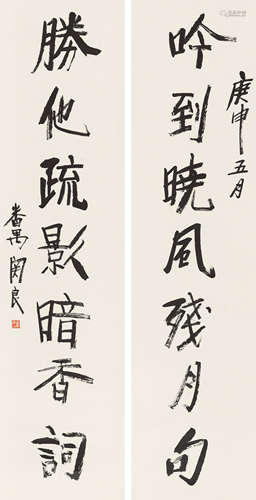 庚申五月
吟到曉風殘月句
勝他疏影暗香詞
番禺關良